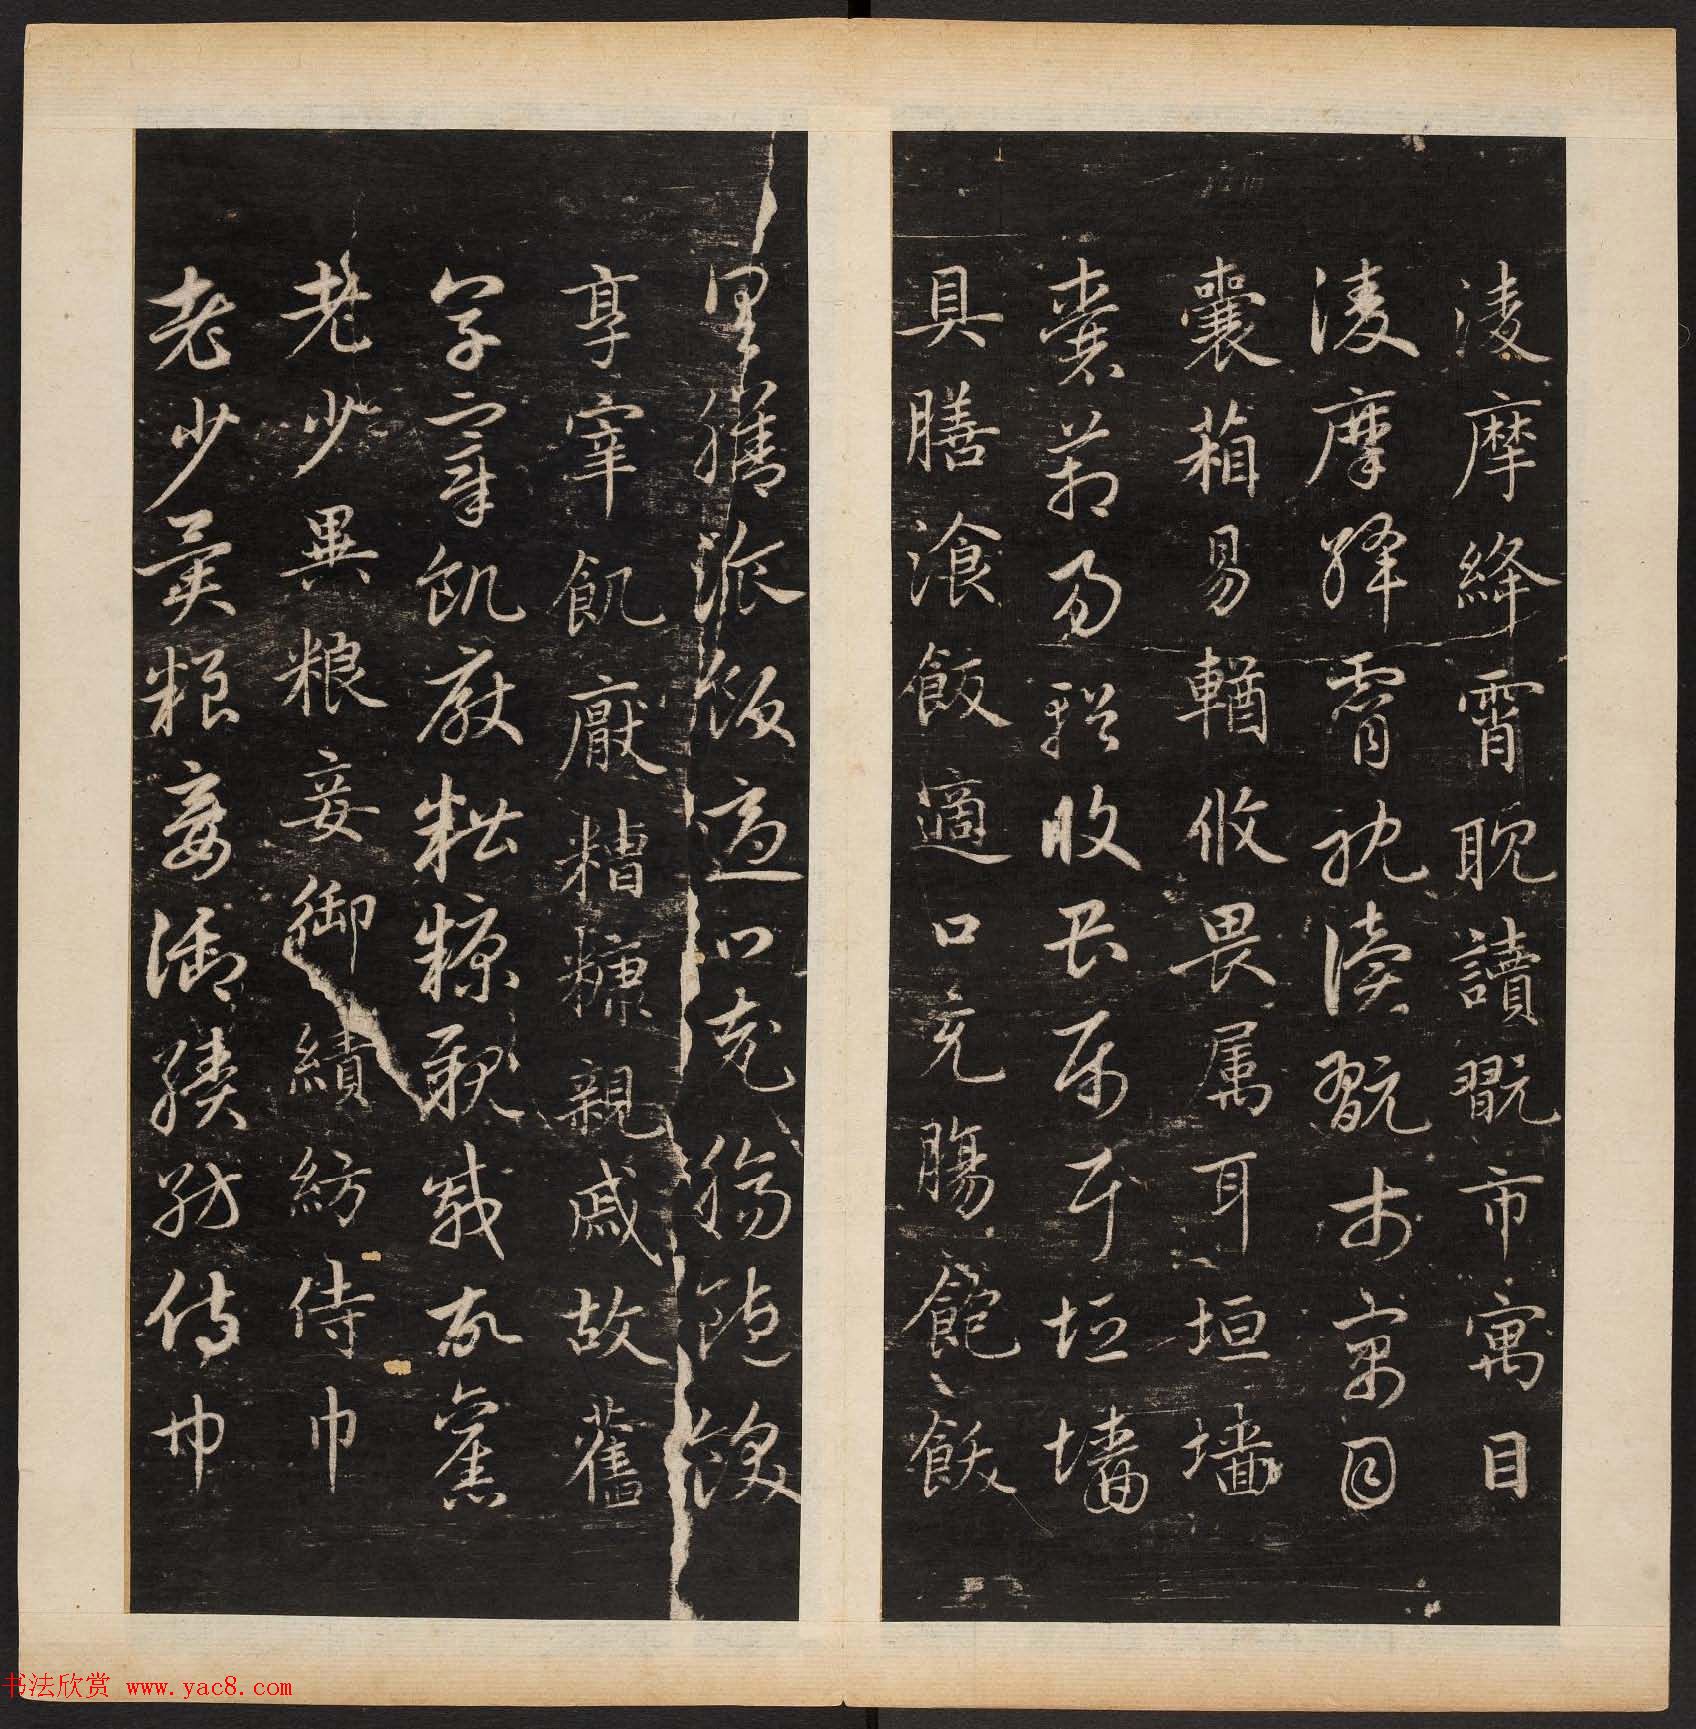 凌摩絳霄耽讀翫市寓目
凌摩絳霄耽讀翫市寓目
囊箱易輶攸畏属耳垣墻
囊箱易輶攸畏属耳垣墻
具膳飡飯適口充腸飽飫
具膳飡飯適口充腸飽飫
享宰飢厭糟糠親戚故舊
享宰飢厭糟糠親戚故舊
老少異粮妾御績紡侍巾
老少異粮妾御績紡侍巾
书法欣赏 www.yac8.com